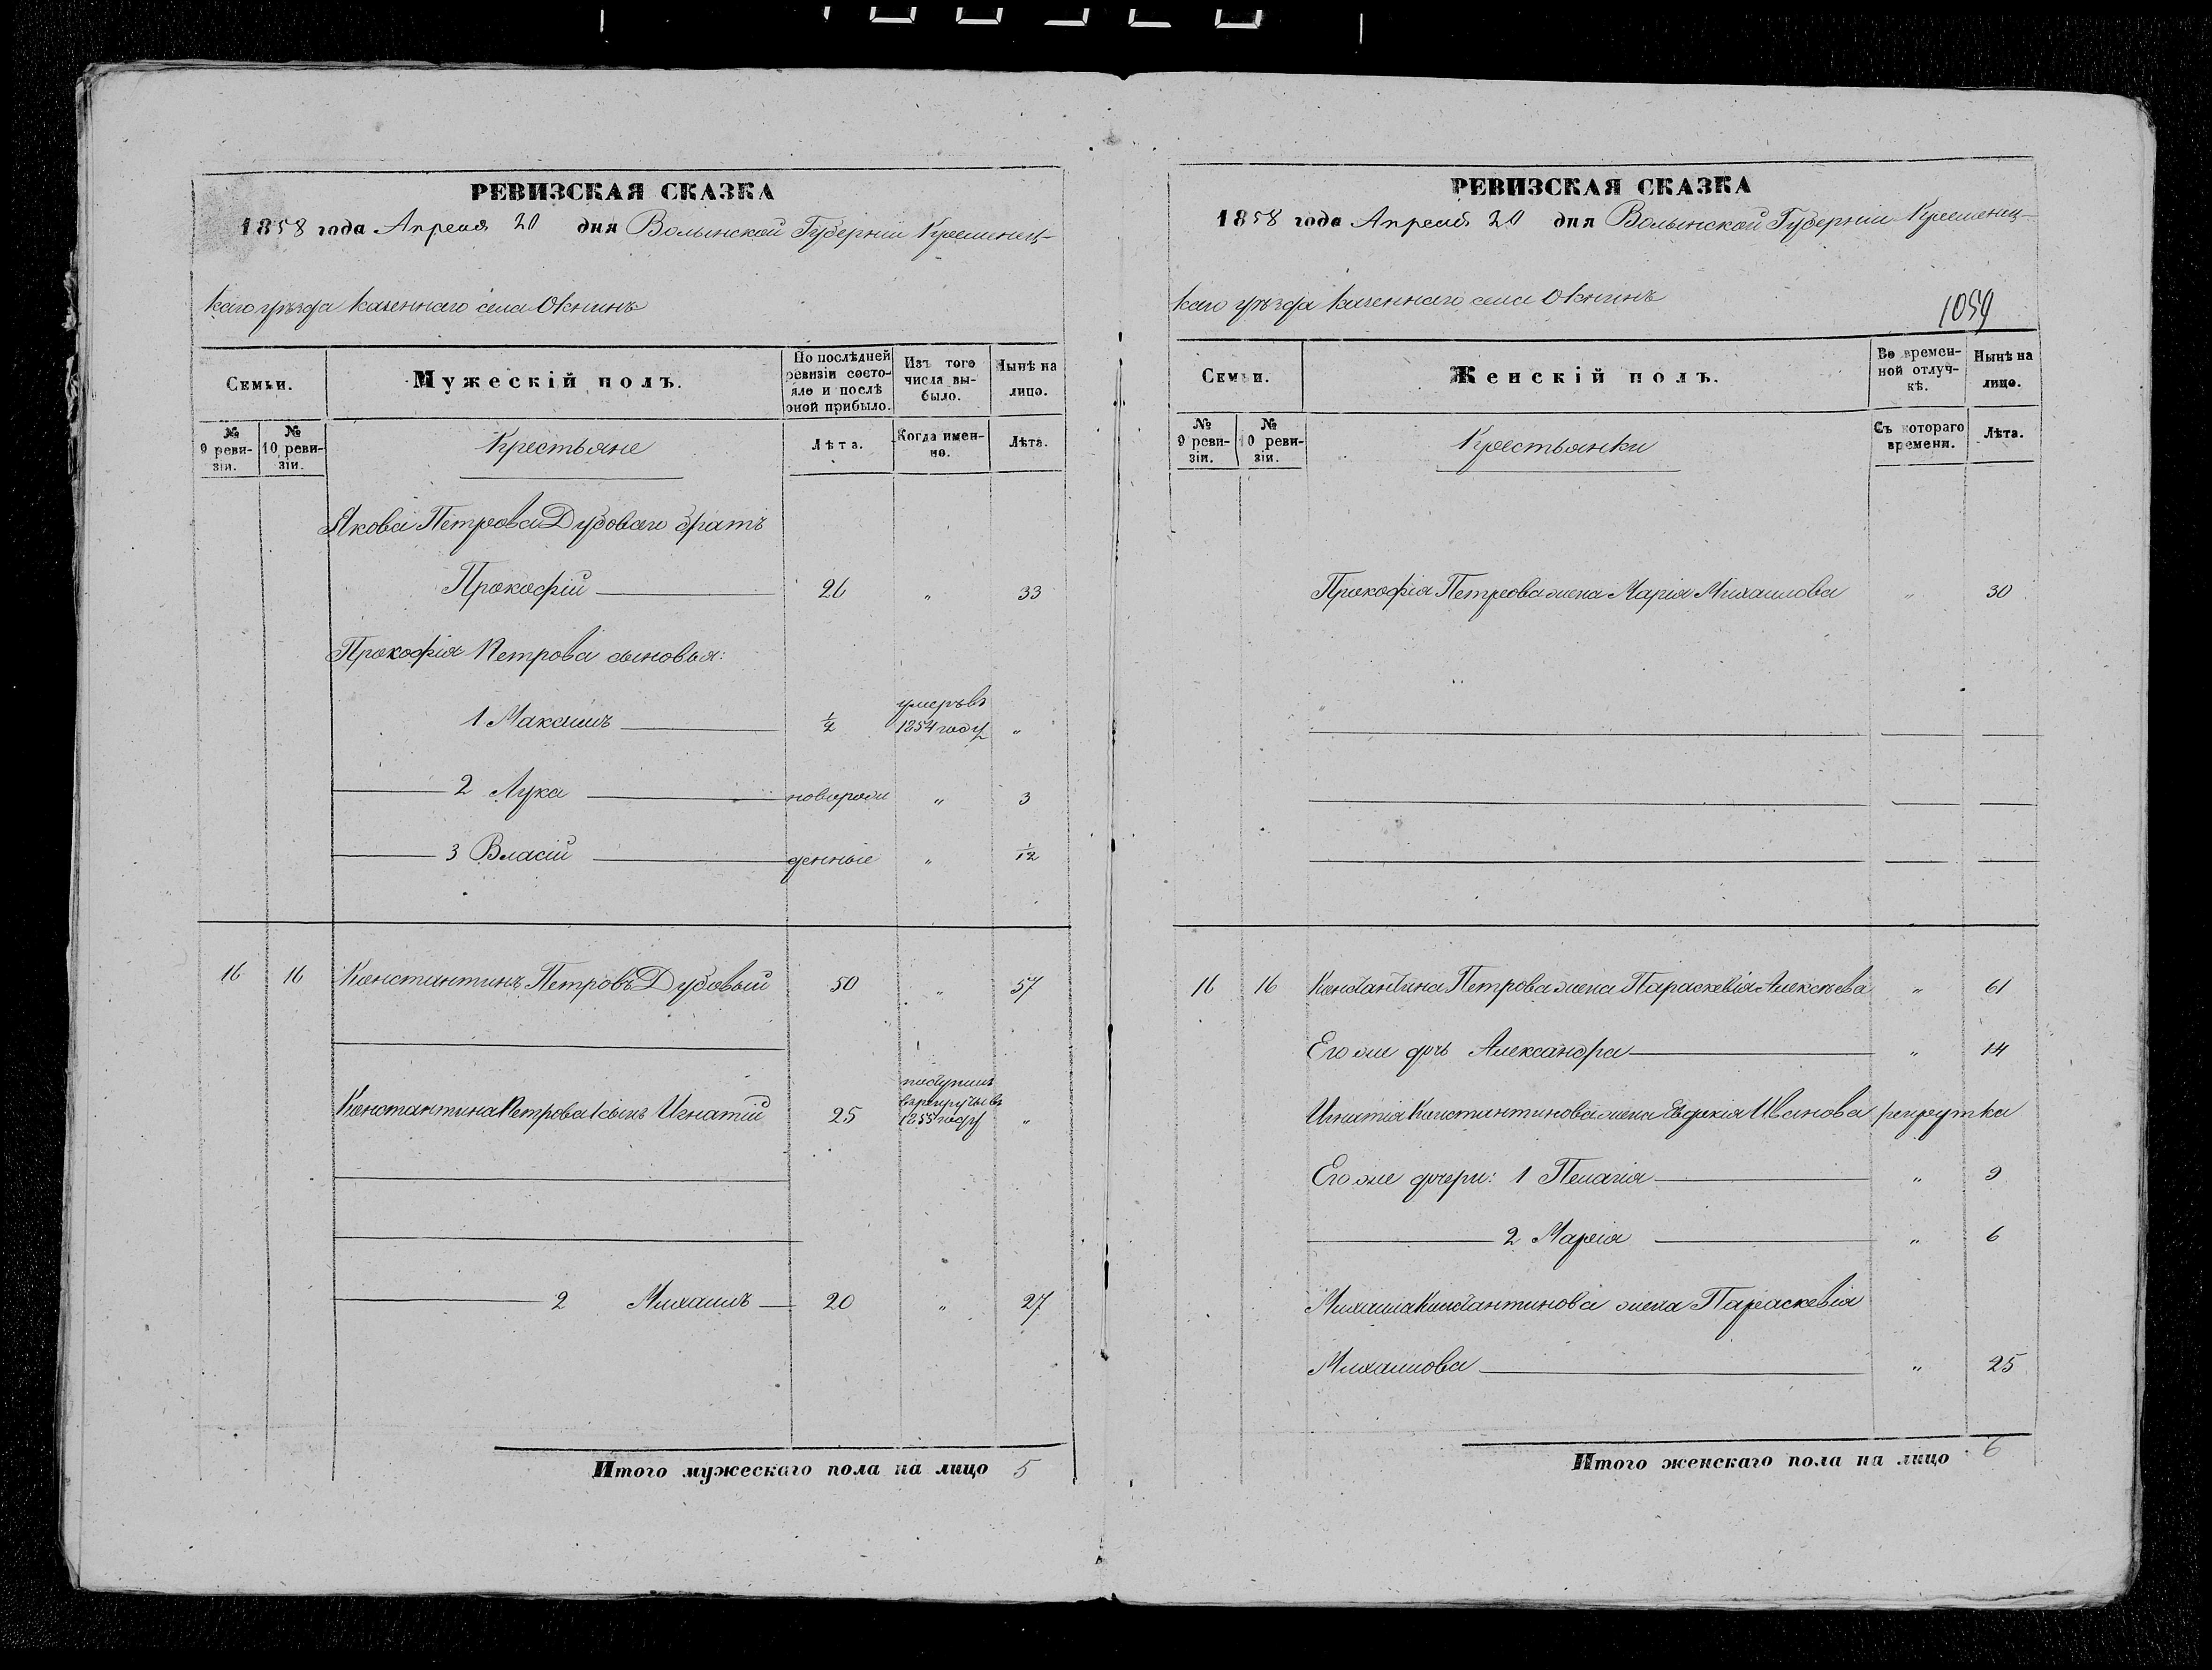 РЕВИЗСКАЯ СКАЗКА
1858 года Апреля 20 дня Волынской Губерніи Кременец-
каго уѣзда казеннаго села Окнинъ
Семьи.
Мужескій полъ.
По послѣдней ревизіи состо-яло и послѣ оной прибыло.
Изъ того числа вы-было.
Нынѣ на лицо.
№ 9 реви-зіи.
№ 10 реви-зіи.
Крестьяне
Лѣта.
Когда имен-но.
Лѣта.
Якова Петрова Дубоваго братъ
Прокофій 26 " 33
Прокофія Петрова сыновья:
1 Макаимъ 1/2 умеръ въ 1854 году "
2 Лука новорож " 3
3 Власій денные " 1/12
16 16 Константинъ Петровъ Дубовый 50 " 57
Константина Петрова 1 сынъ Игнатій 25 поступилъ в рекруты въ 1855 году "
2 Михаилъ 20 " 27
Итого мужескаго пола на лицо 5
РЕВИЗСКАЯ СКАЗКА
1858 года Апреля 20 дня Волынской Губерніи Кременец-
каго уѣзда казеннаго села Окнинъ
1059
Семьи.
Женскій полъ.
Во времен-ной отлуч-кѣ.
Нынѣ на лицо.
№ 9 реви-зіи.
№ 10 реви-зіи.
Крестьянки
Съ котораго времени.
Лѣта.
Прокофія Петрова жена Марія Михаилова " 30
16 16 Константина Петрова жена Параскевія Алексѣева " 61
Его же дочь Александра " 14
Игнатія Константинова жена Евдокія Иванова рекрутка
Его же дочери: 1 Пелагія " 9
2 Марія " 6
Михаила Константинова жена Параскевія
Михаилова " 25
Итого женскаго пола на лицо 6